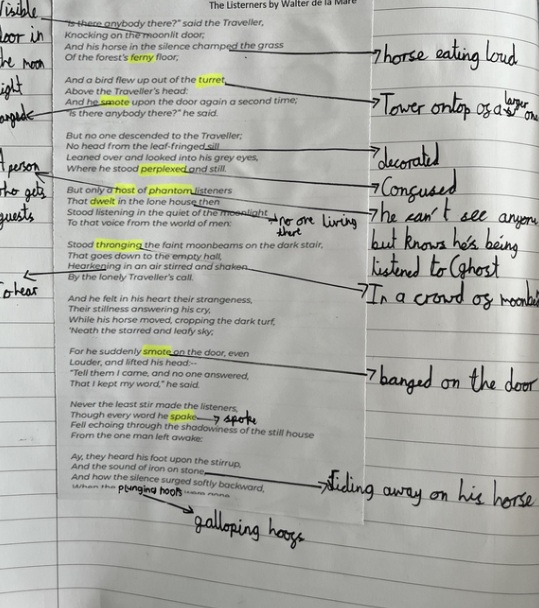 The Listerners by Walter de la Mare
"Is there anybody there?" said the Traveller,
Knocking on the moonlit door;
And his horse in the silence champed the grass
Of the forest's ferny floor;
And a bird flew up out of the turret,
Above the Traveller's head:
And he smote upon the door again a second time;
"Is there anybody there?" he said.
But no one descended to the Traveller;
No head from the leaf-fringed sill
Leaned over and looked into his grey eyes,
Where he stood perplexed and still.
But only a host of phantom listeners
That dwelt in the lone house then
Stood listening in the quiet of the moonlight
To that voice from the world of men:
Stood thronging the faint moonbeams on the dark stair,
That goes down to the empty hall,
Hearkening in an air stirred and shaken
By the lonely Traveller's call.
And he felt in his heart their strangeness,
Their stillness answering his cry,
While his horse moved, cropping the dark turf,
'Neath the starred and leafy sky;
For he suddenly smote on the door, even
Louder, and lifted his head:–
"Tell them I came, and no one answered,
That I kept my word," he said.
Never the least stir made the listeners,
Though every word he spake
Fell echoing through the shadowiness of the still house
From the one man left awake:
Ay, they heard his foot upon the stirrup,
And the sound of iron on stone,
And how the silence surged softly backward,
When the plunging hoofs
visible
door in
the moon
light
person
who gets
guests
To hear
horse eating loud
Tower ontop of a larger one
decorated
Confused
he can't see anyone
but knows he's being
listened to (ghost
no one living
there
In a crowd of
banged on the door
spoke
riding away on his horse
galloping hoofs